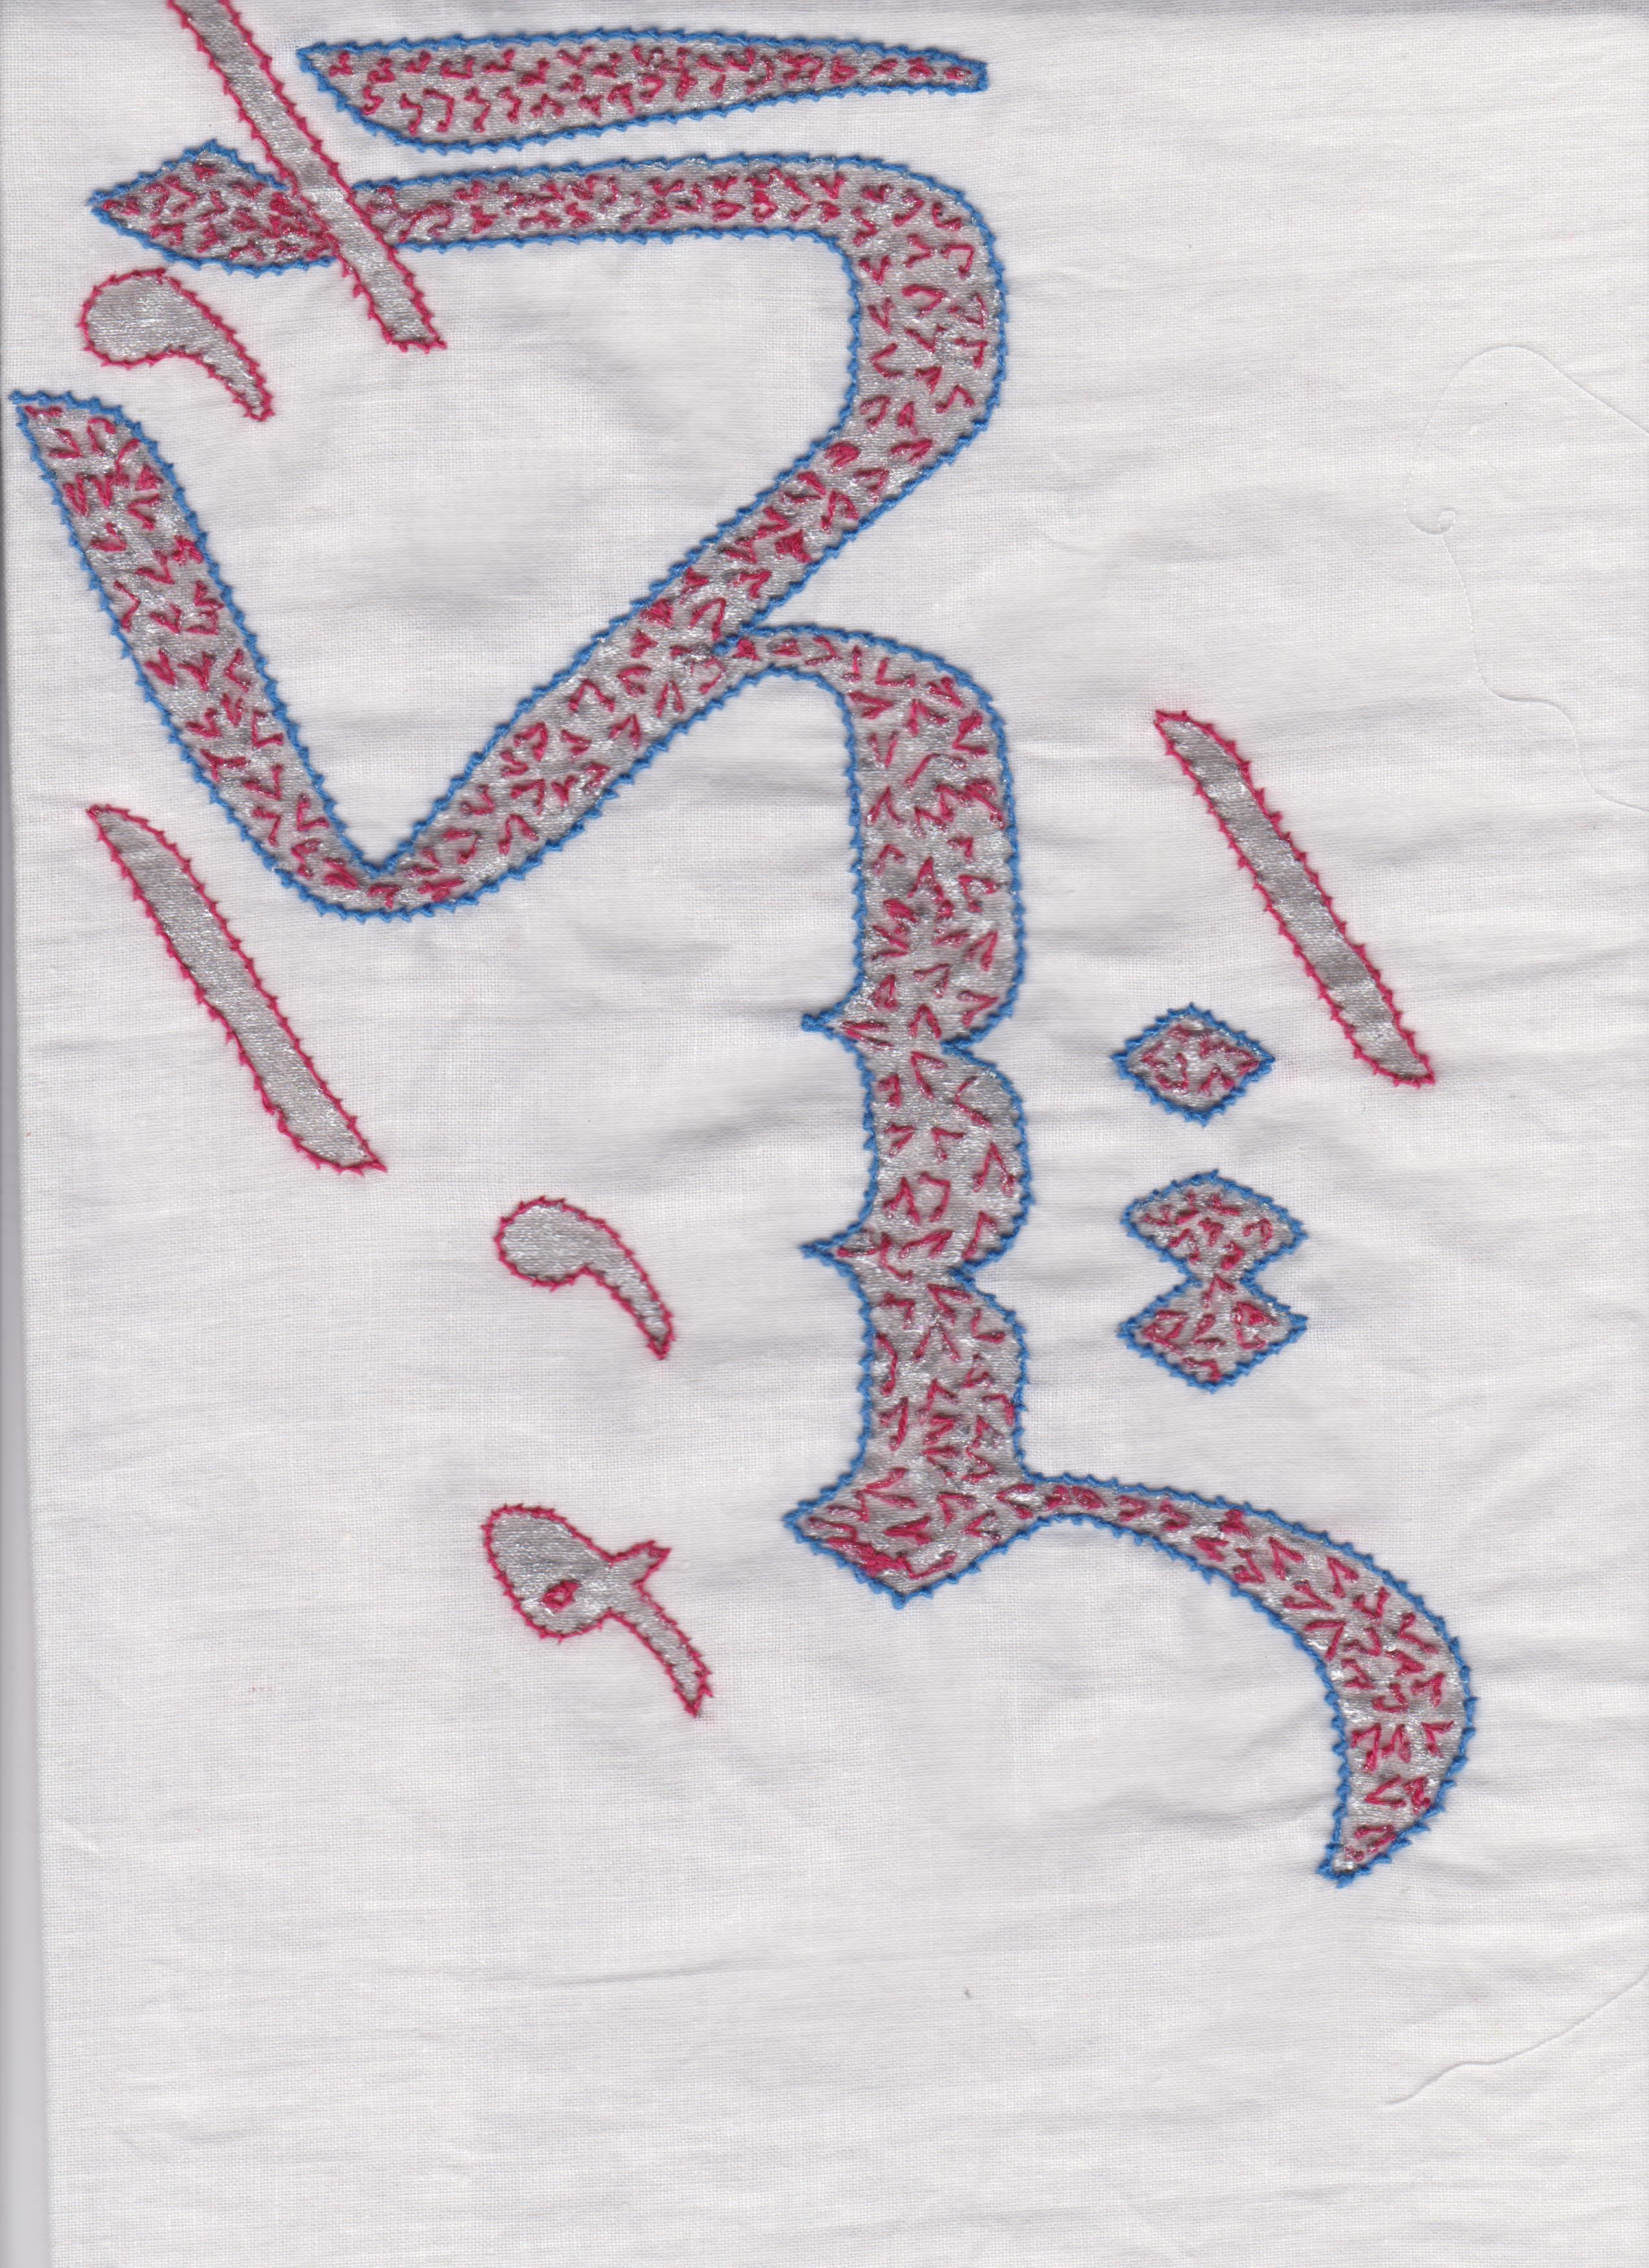 اَلْكَبِيْرُ